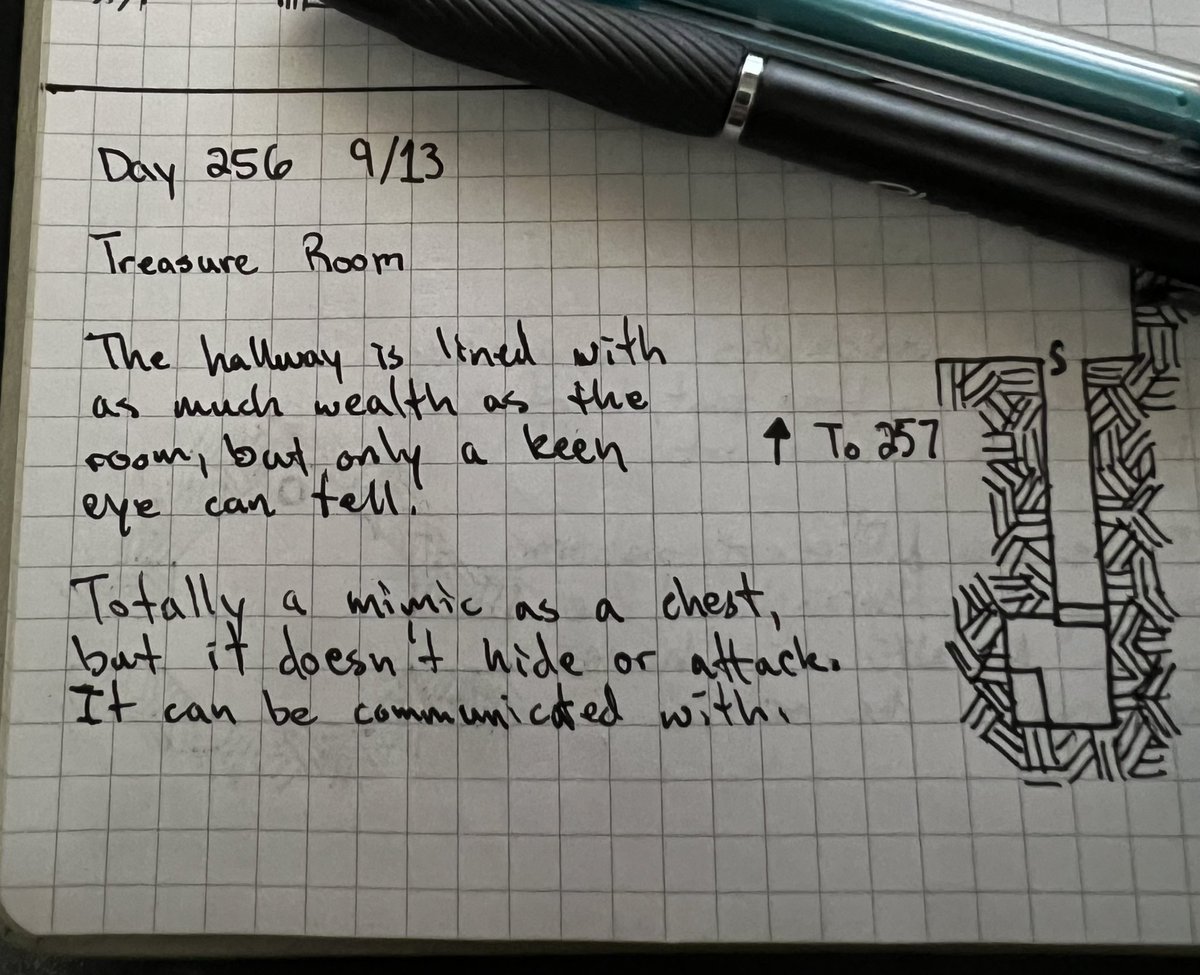 Day 256 9/13
Treasure Room
The hallway is lined with
as much wealth as the
room, but only a keen
eye can tell!
↑ To 257
S
Totally a mimic as a chest,
but it doesn't hide or attack.
It can be communicated with.